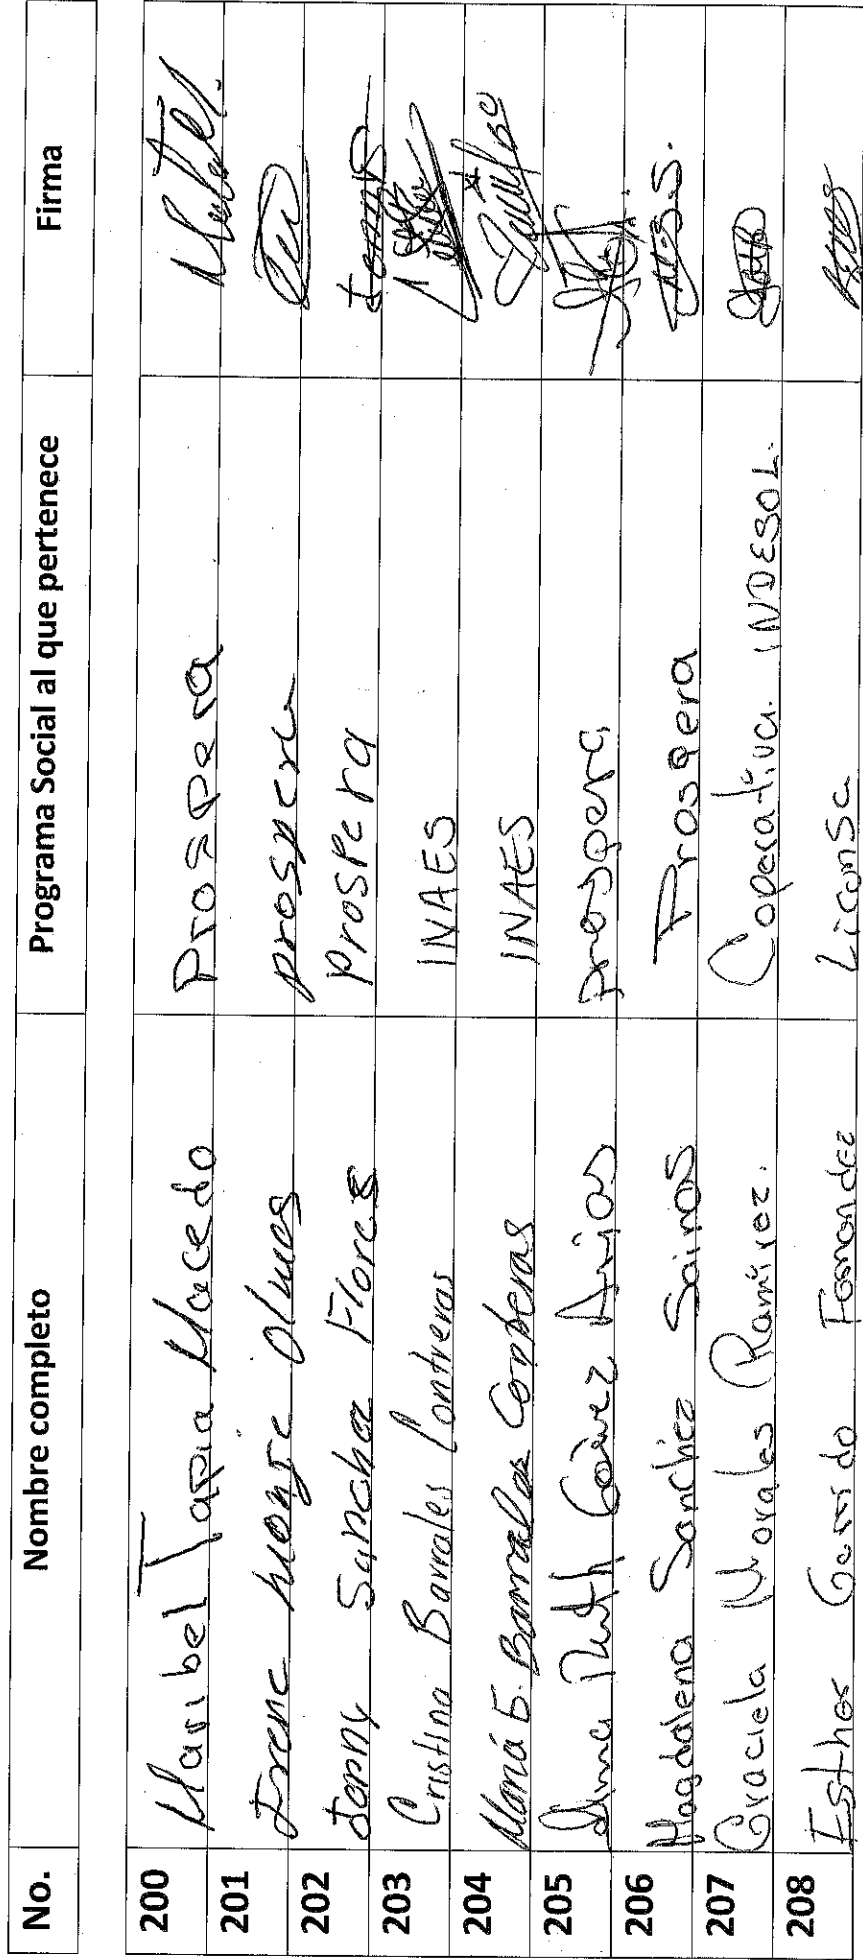 No. Nombre completo Programa Social al que pertenece Firma
200 Maribel Tapia Macedo Prospera
201 Irene Monge Olmos prospera
202 Jenny Sanchez Flores Prospera
203 Cristina Barrales Contreras INAES
204 María E. Barrales Contreras INAES
205 Alma Ruth Gómez prospera
206 Magdalena Sanchez Sainos Prospera
207 Graciela Morales Ramírez. Coperativa. INDESOL.
208 Esther Garrido Fernandez Liconsa